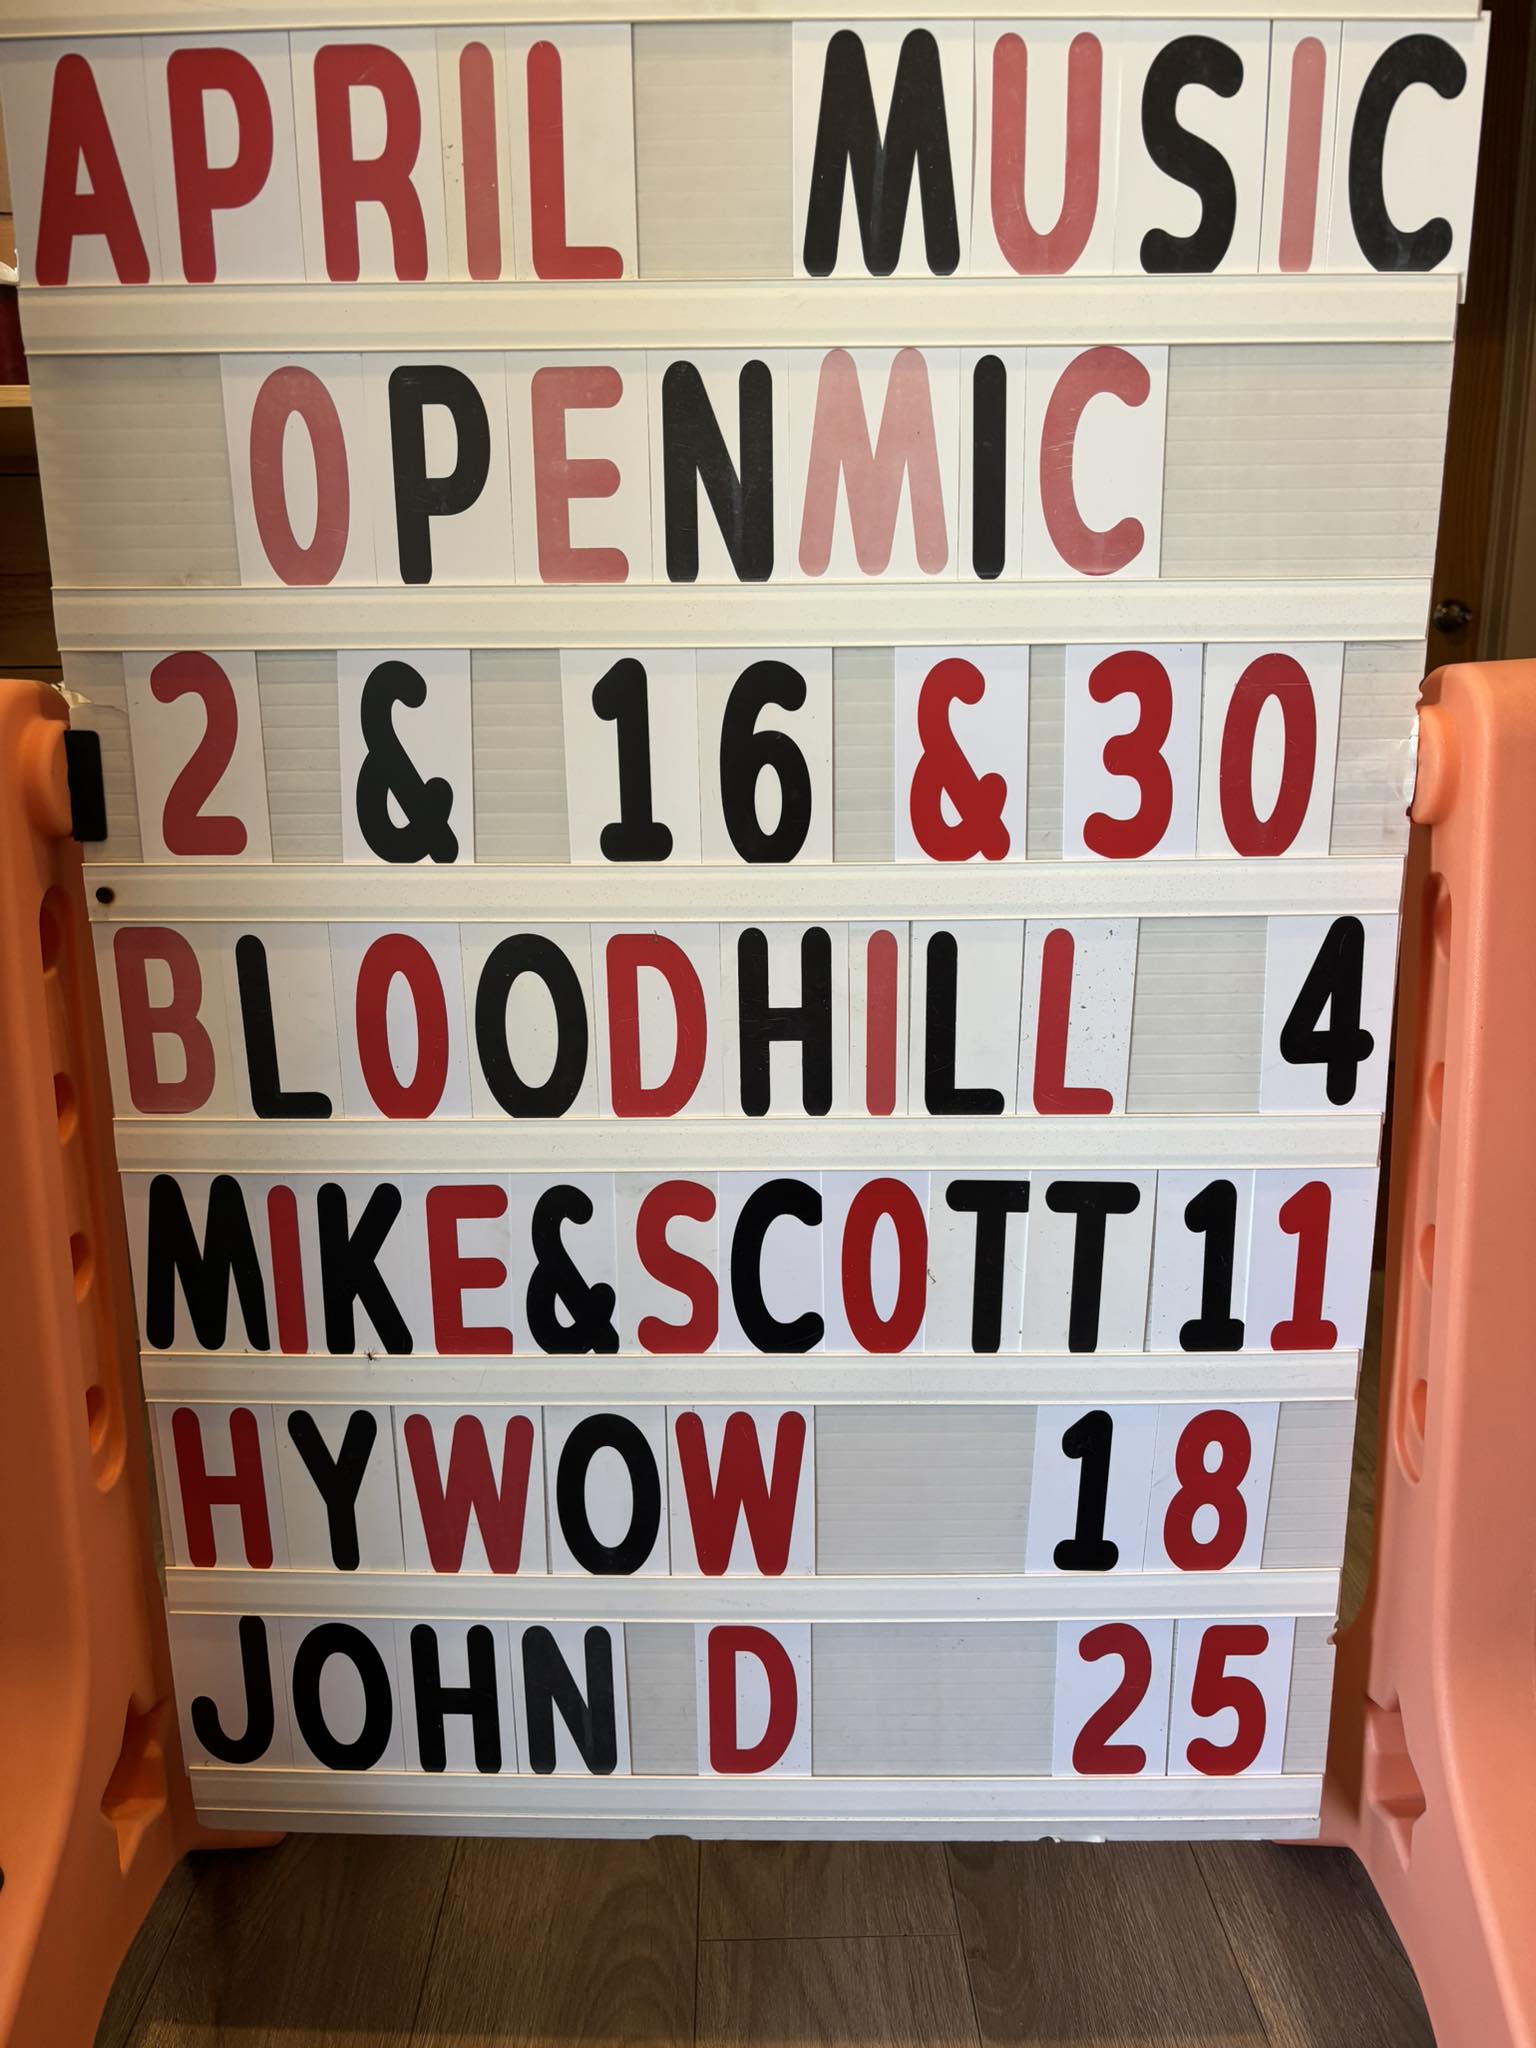 APRIL MUSIC
OPENMIC
2 & 16 & 30
BLOODHILL 4
MIKE&SCOTT11
HYWOW 18
JOHN D 25